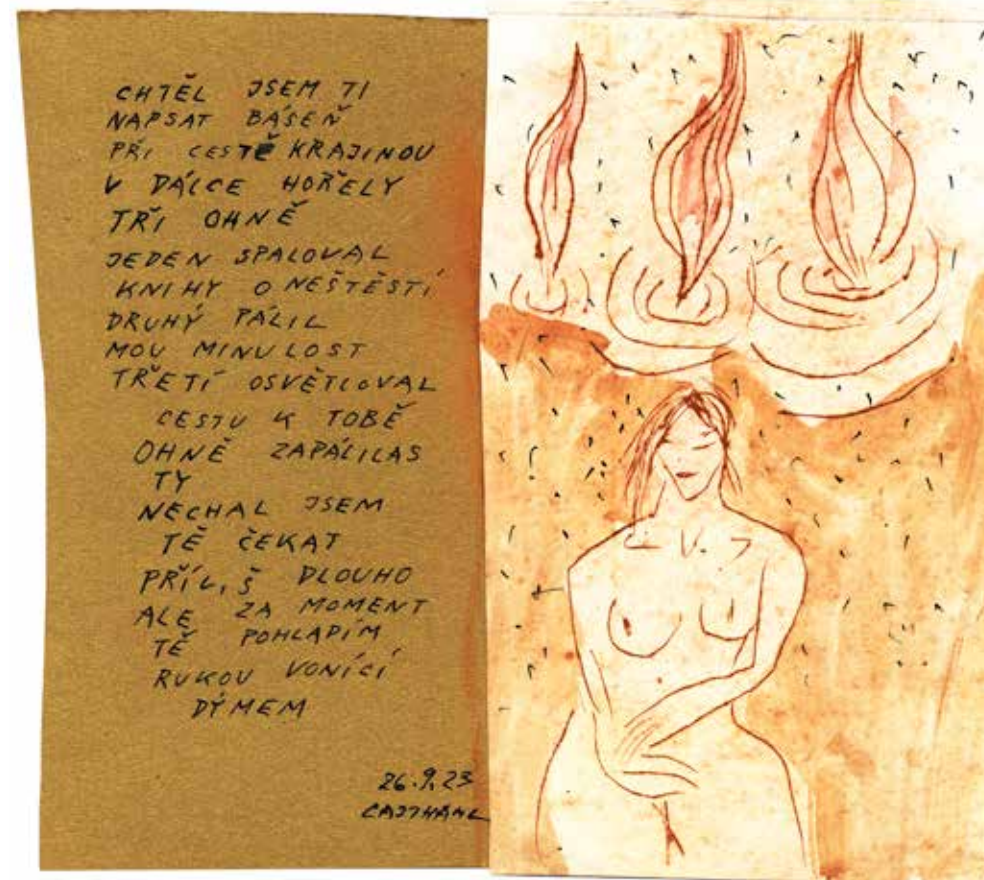 CHTĚL JSEM TI
NAPSAT BÁSEŇ
PŘI CESTĚ KRAJINOU
V DÁLCE HOŘELY
TŘI OHNĚ
JEDEN SPALOVAL
KNIHY O NEŠTĚSTÍ
DRUHÝ PÁLIL
MOU MINULOST
TŘETÍ OSVĚTLOVAL
CESTU K TOBĚ
OHNĚ ZAPÁLILAS
TY
NECHAL JSEM
TĚ ČEKAT
PŘÍLIŠ DLOUHO
ALE ZA MOMENT
TĚ POHLADÍM
RUKOU VONÍCÍ
DÝMEM
26.9.23
CAJTHAML